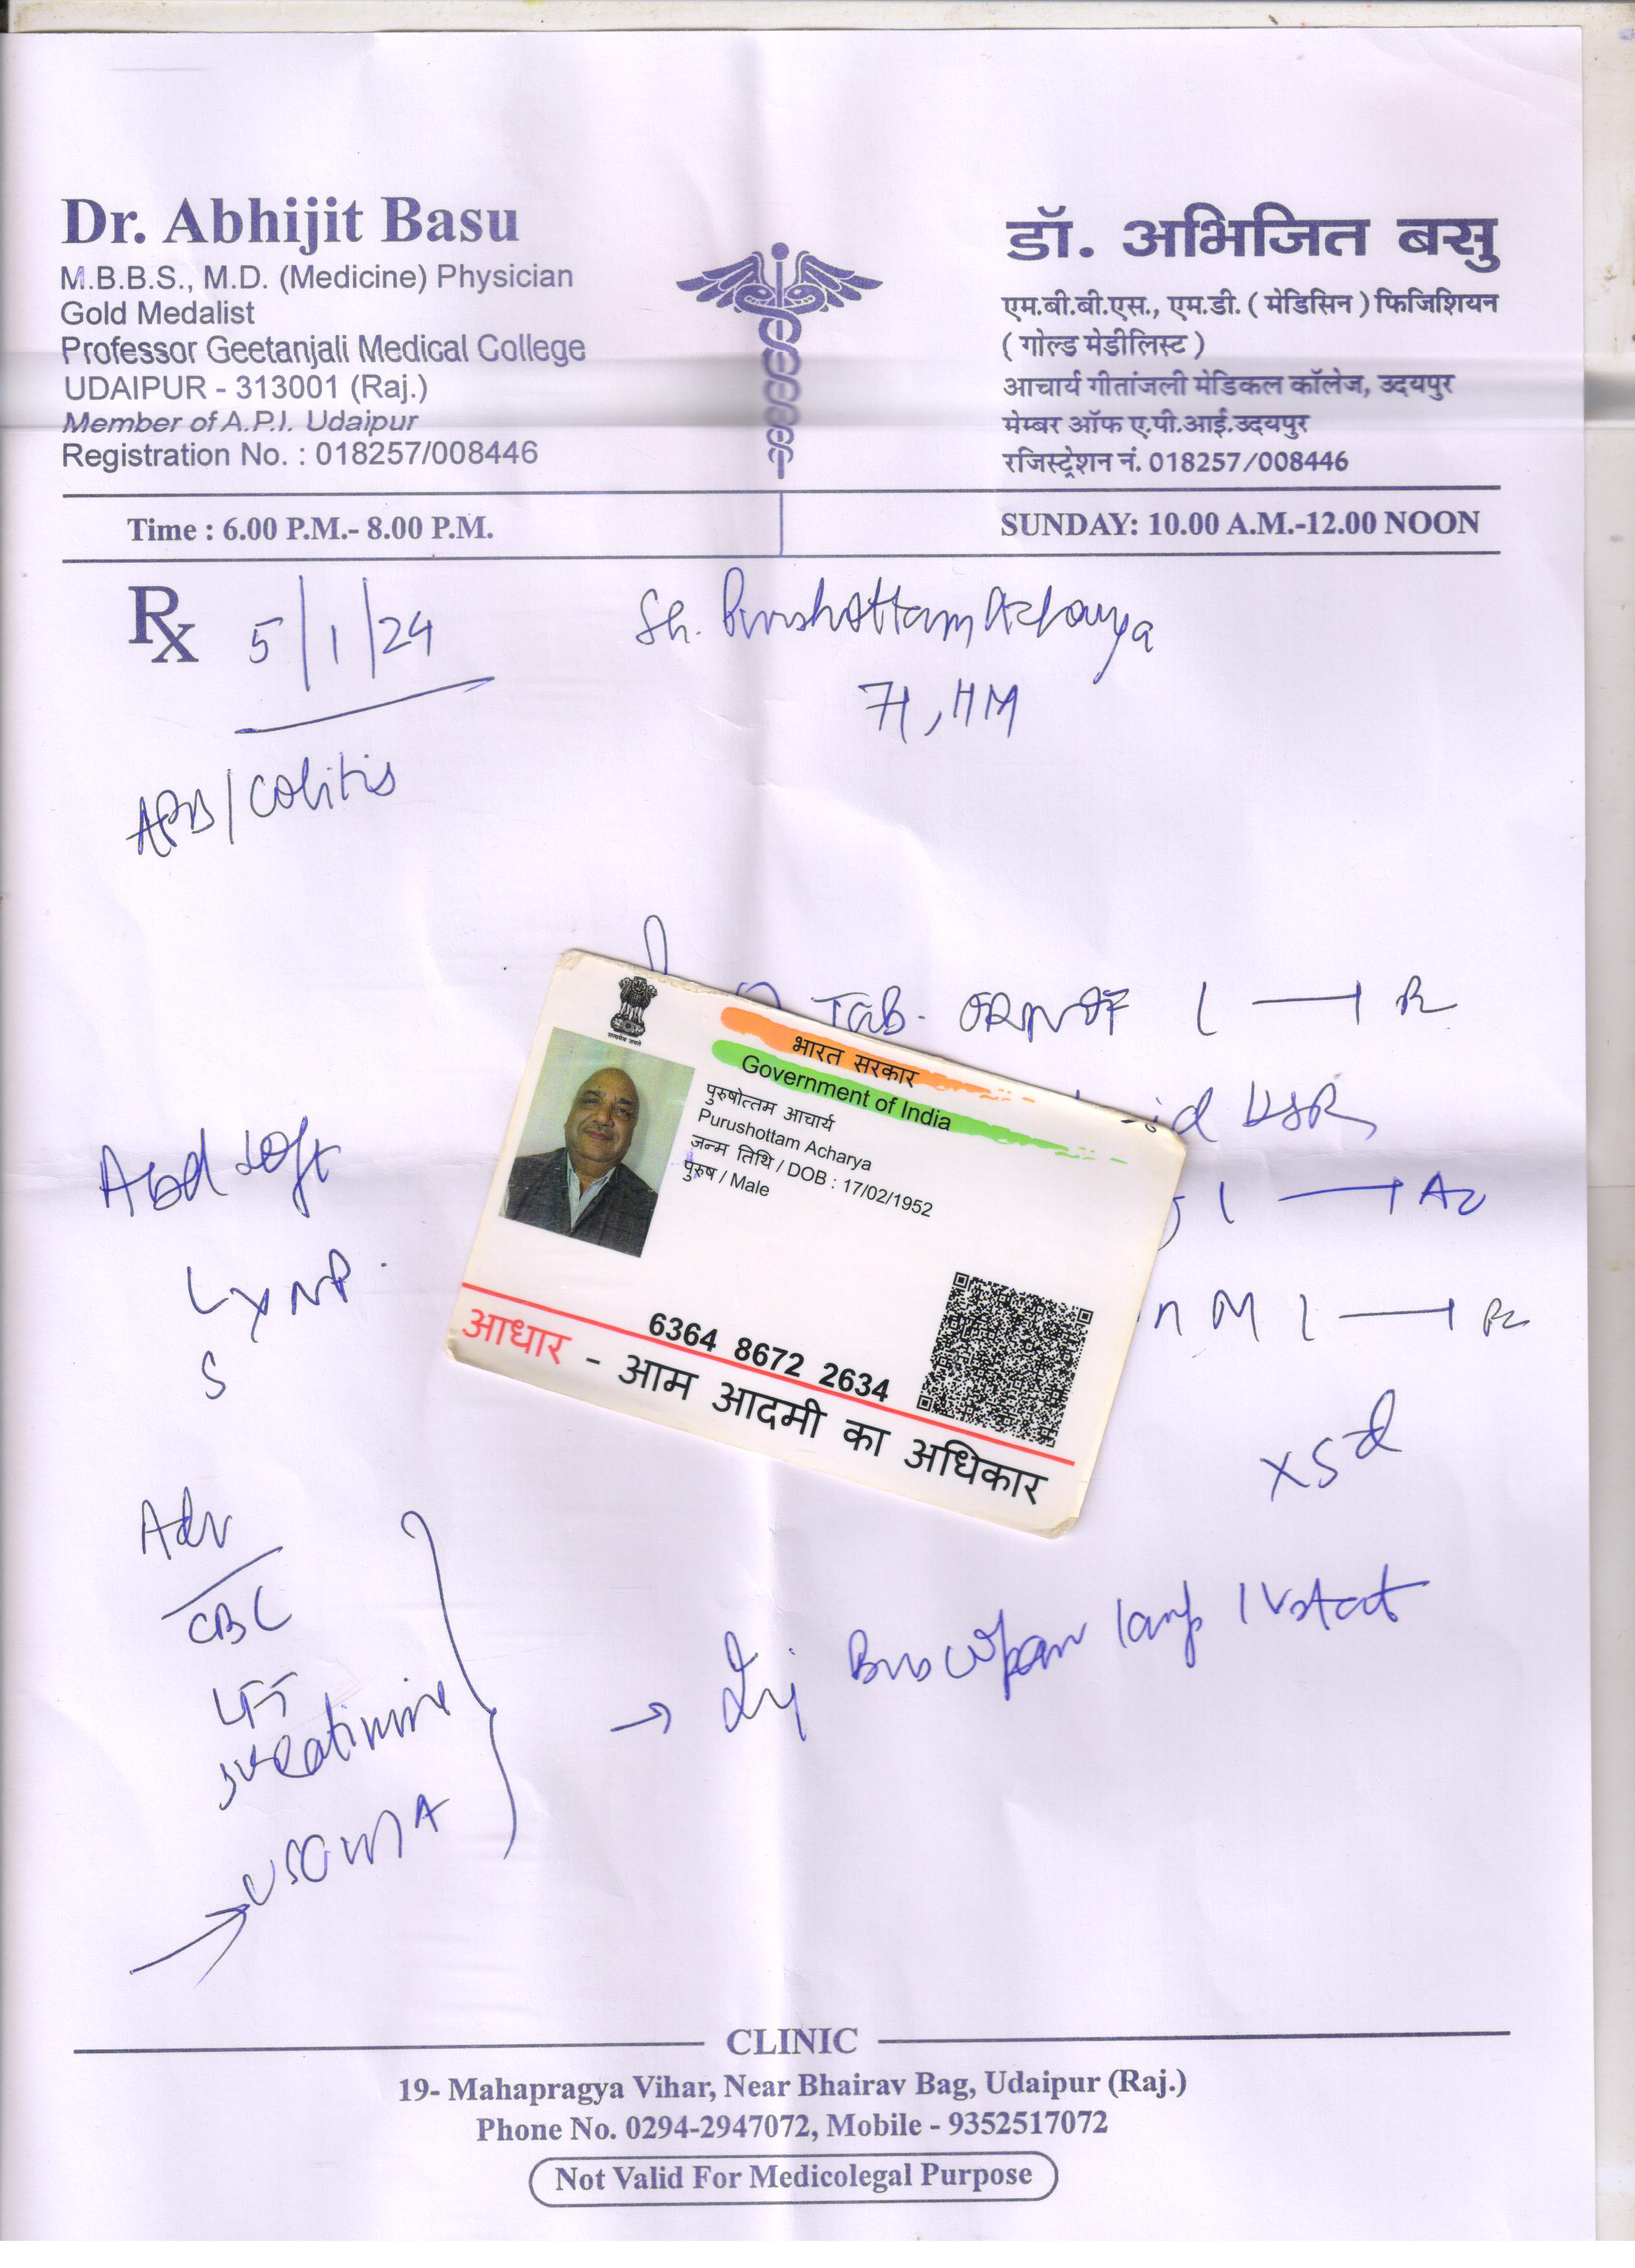 Dr. Abhijit Basu
M.B.B.S., M.D. (Medicine) Physician
Gold Medalist
Professor Geetanjali Medical College
UDAIPUR - 313001 (Raj.)
Member of A.P.I. Udaipur
Registration No. : 018257/008446
डॉ. अभिजित बसु
एम.बी.बी.एस., एम.डी. ( मेडिसिन ) फिजिशियन
( गोल्ड मेडीलिस्ट )
आचार्य गीतांजली मेडिकल कॉलेज, उदयपुर
मेम्बर ऑफ ए.पी.आई.उदयपुर
रजिस्ट्रेशन नं. 018257/008446
Time : 6.00 P.M.- 8.00 P.M.
SUNDAY: 10.00 A.M.-12.00 NOON
Rx 5/1/24
Sh. Purushottam Acharya
71, HM
/Colitis
Tab.
भारत सरकार
Government of India
पुरुषोत्तम आचार्य
Purushottam Acharya
जन्म तिथि / DOB : 17/02/1952
पुरुष / Male
6364 8672 2634
आधार - आम आदमी का अधिकार
Abd soft
S
x5d
Adv
CBC
LFT
S creatinine
USG W/A
→ Inj Buscopan 1amp IV stat
CLINIC
19- Mahapragya Vihar, Near Bhairav Bag, Udaipur (Raj.)
Phone No. 0294-2947072, Mobile - 9352517072
Not Valid For Medicolegal Purpose